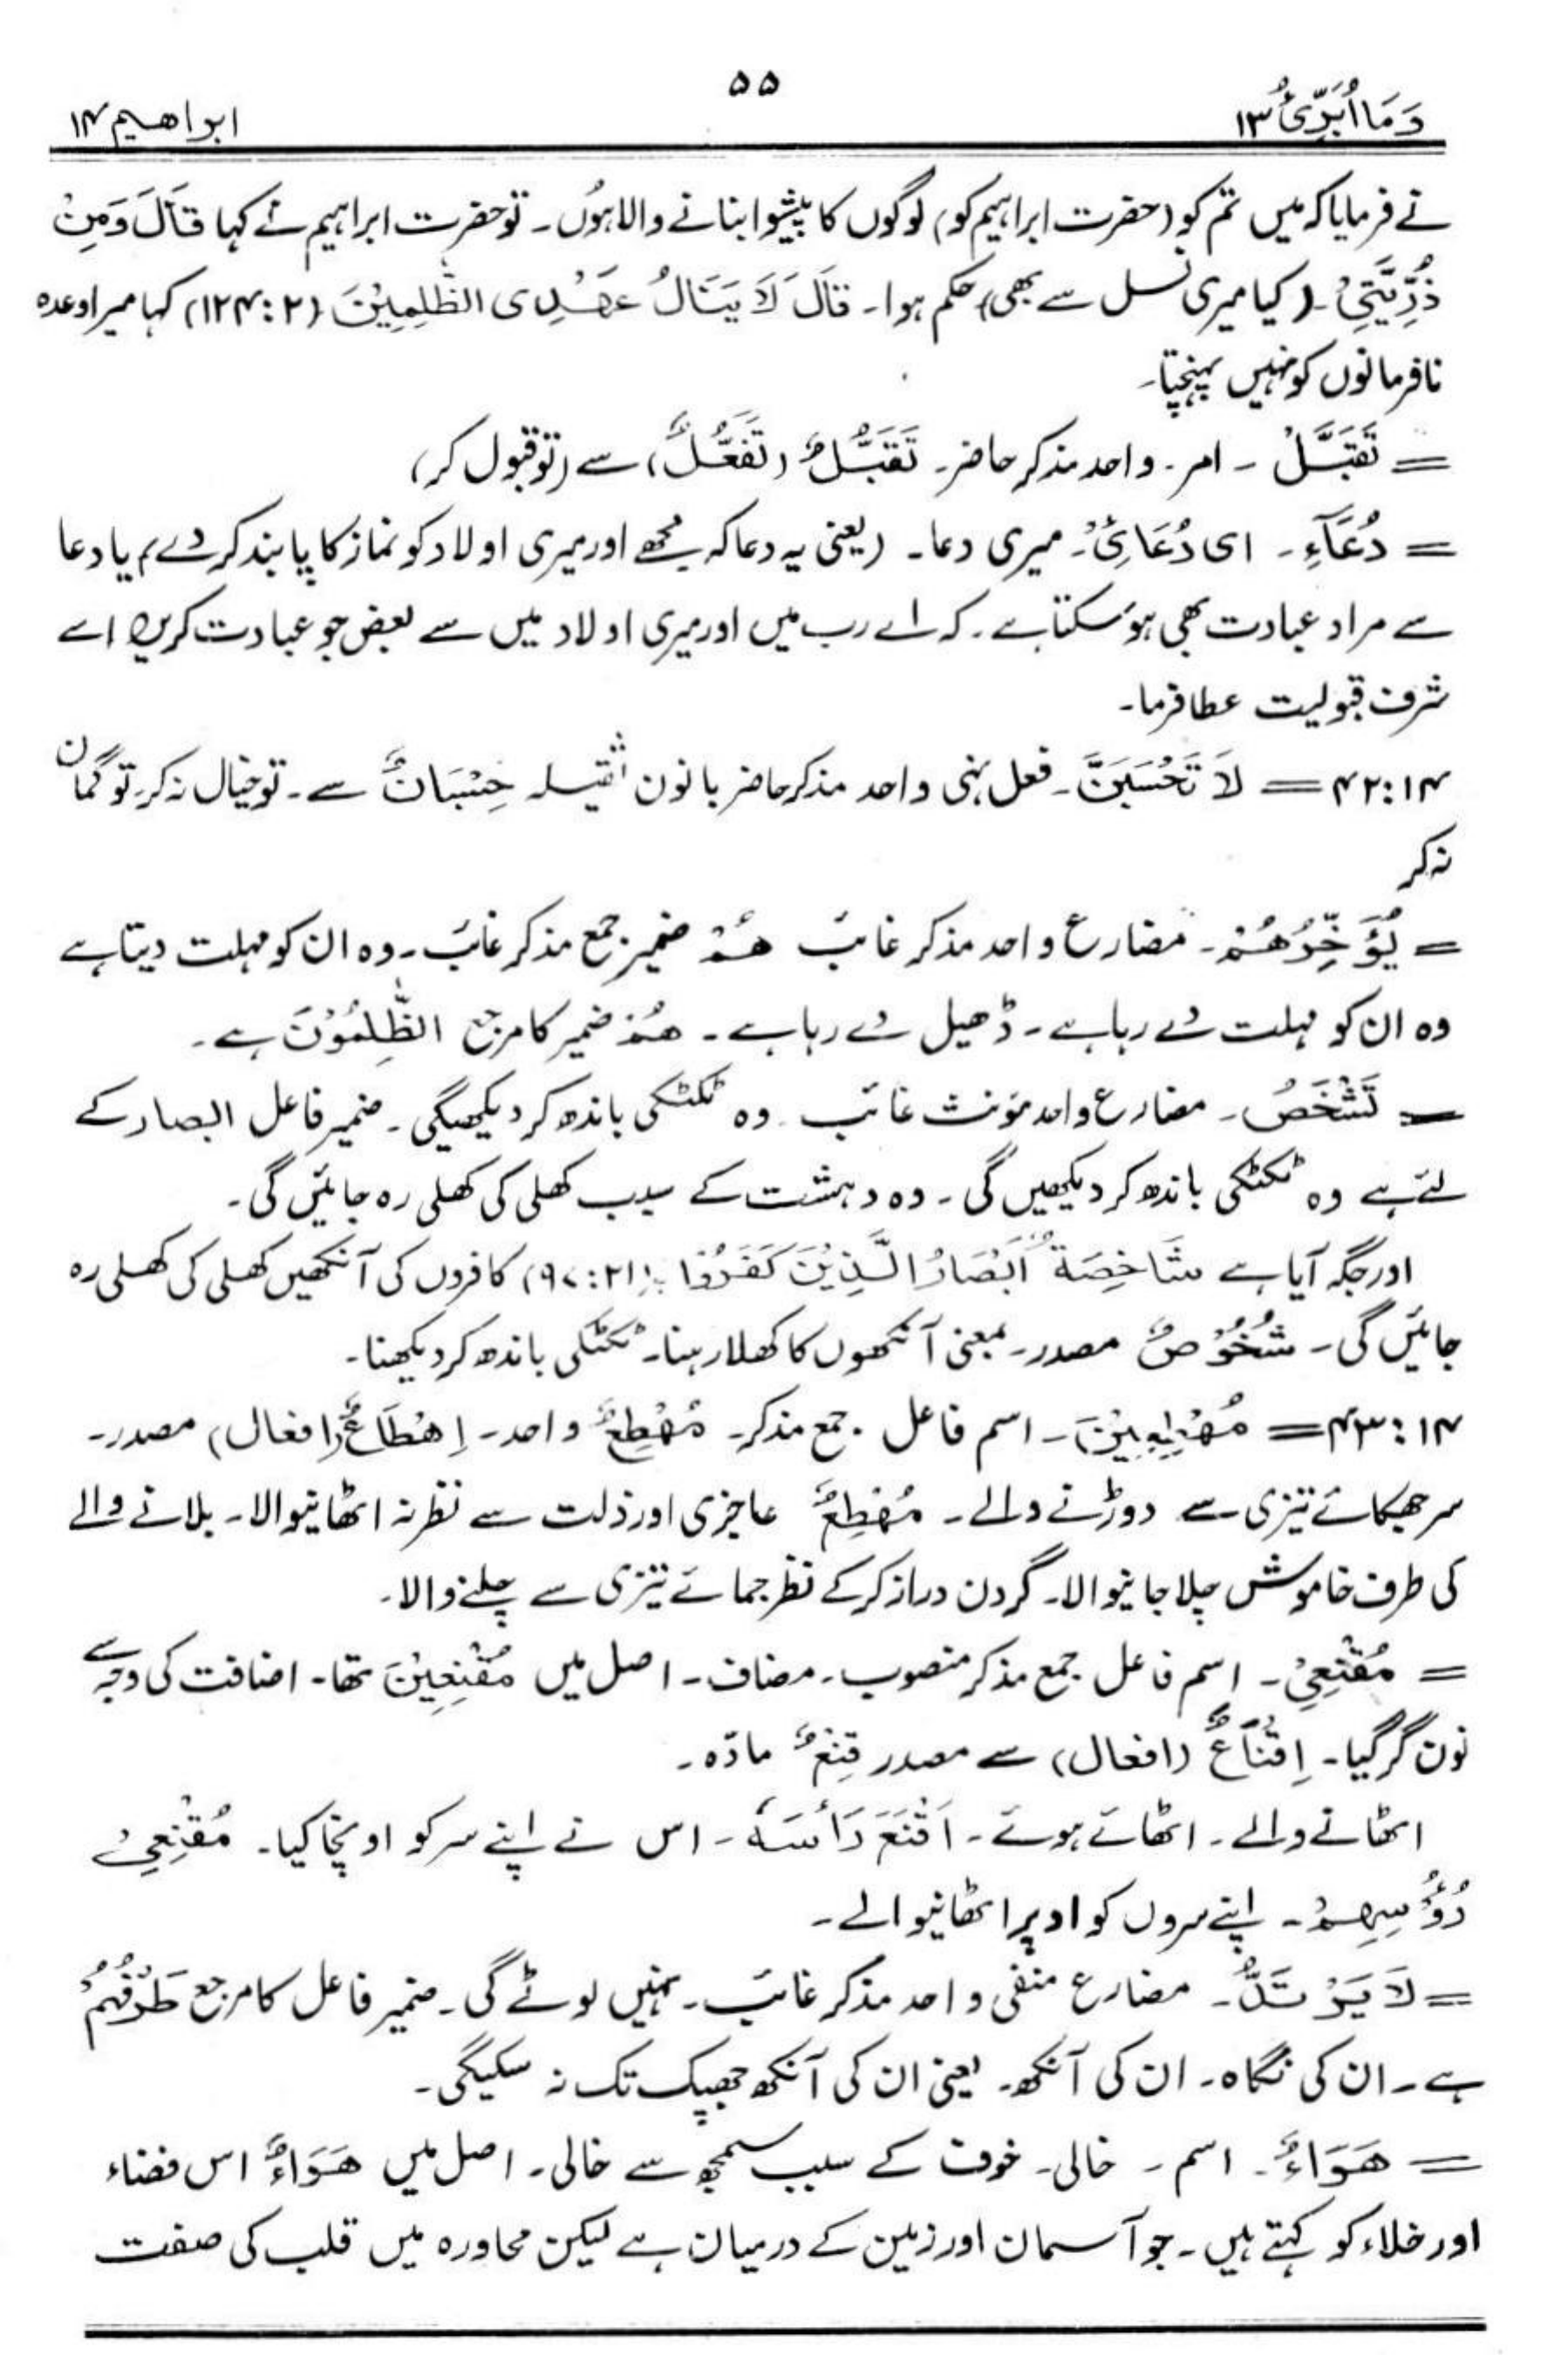 ۵۵
وَمَا اُبَرِّئُ ۱۳
ابراھیم ۱۴
نے فرمایا کہ میں تم کو (حضرت ابراہیم کو) لوگوں کا پیشوا بنانے والا ہوں۔ تو حضرت ابراہیم نے کہا قَالَ وَمِنْ
ذُرِّیَّتِیْ۔ (کیا میری نسل سے بھی) حکم ہوا۔ قَالَ لَا یَنَالُ عَھْدِی الظّٰلِمِیْنَ (۲: ۱۲۴) کہا میرا وعدہ
نافرمانوں کو نہیں پہنچتا۔
= تَقَبَّلْ ۔ امر۔ واحد مذکر حاضر۔ تَقَبُّلٌ (تَفَعُّلٌ) سے (تو قبول کر)
= دُعَآءِ۔ ای دُعَائِیْ۔ میری دعا۔ (یعنی یہ دعا کہ مجھے اور میری اولاد کو نماز کا پابند کر دے) یا دعا
سے مراد عبادت بھی ہو سکتا ہے۔ کہ اے رب میں اور میری اولاد میں سے بعض جو عبادت کریں اسے
شرف قبولیت عطا فرما۔
۱۴: ۴۲ = لَا تَحْسَبَنَّ۔ فعل نہی واحد مذکر حاضر بانون ثقیلہ حِسْبَانٌ سے۔ تو خیال نہ کر۔ تو گمان
نہ کر
= یُؤَخِّرُھُمْ۔ مضارع واحد مذکر غائب ھُمْ ضمیر جمع مذکر غائب۔ وہ ان کو مہلت دیتا ہے
وہ ان کو مہلت دے رہا ہے۔ ڈھیل دے رہا ہے۔ ھُمْ ضمیر کا مرجع الظّٰلِمُوْنَ ہے۔
= تَشْخَصُ۔ مضارع واحد مؤنث غائب۔ وہ ٹکٹکی باندھ کر دیکھیگی۔ ضمیر فاعل البصار کے
لئے ہے وہ ٹکٹکی باندھ کر دیکھیں گی۔ وہ دہشت کے سبب کھلی کی کھلی رہ جائیں گی۔
اور جگہ آیا ہے شَاخِصَۃٌ اَبْصَارُ الَّذِیْنَ کَفَرُوْا (۲۱: ۹۷) کافروں کی آنکھیں کھلی کی کھلی رہ
جائیں گی۔ شُخُوْصٌ مصدر۔ بمعنی آنکھوں کا کھلا رہنا۔ ٹکٹکی باندھ کر دیکھنا۔
۱۴: ۴۳ = مُھْطِعِیْنَ۔ اسم فاعل۔ جمع مذکر۔ مُھْطِعٌ واحد۔ اِھْطَاعٌ (افعال) مصدر۔
سر جھکائے تیزی سے دوڑنے والے۔ مُھْطِعٌ عاجزی اور ذلت سے نظر نہ اٹھانیوالا۔ بلانے والے
کی طرف خاموش چلا جانیوالا۔ گردن دراز کرکے نظر جمائے تیزی سے چلنے والا۔
= مُقْنِعِیْ۔ اسم فاعل جمع مذکر منصوب۔ مضاف۔ اصل میں مُقْنِعِیْنَ تھا۔ اضافت کی وجہ سے
نون گر گیا۔ اِقْنَاعٌ (افعال) سے مصدر قِنْعٌ مادّہ۔
اٹھانے والے۔ اٹھائے ہوئے۔ اَقْنَعَ رَأْسَہٗ۔ اس نے اپنے سر کو اونچا کیا۔ مُقْنِعِیْ
رُءُوْسِھِمْ۔ اپنے سروں کو اوپر اٹھانیوالے۔
= لَا یَرْتَدُّ۔ مضارع منفی واحد مذکر غائب۔ نہیں لوٹے گی۔ ضمیر فاعل کا مرجع طَرْفُہُمْ
ہے۔ ان کی نگاہ۔ ان کی آنکھ۔ یعنی ان کی آنکھ جھپک تک نہ سکیگی۔
= ھَوَاءٌ۔ اسم۔ خالی۔ خوف کے سبب سمجھ سے خالی۔ اصل میں ھَوَاءٌ اس فضاء
اور خلاء کو کہتے ہیں۔ جو آسمان اور زمین کے درمیان ہے لیکن محاورہ میں قلب کی صفت